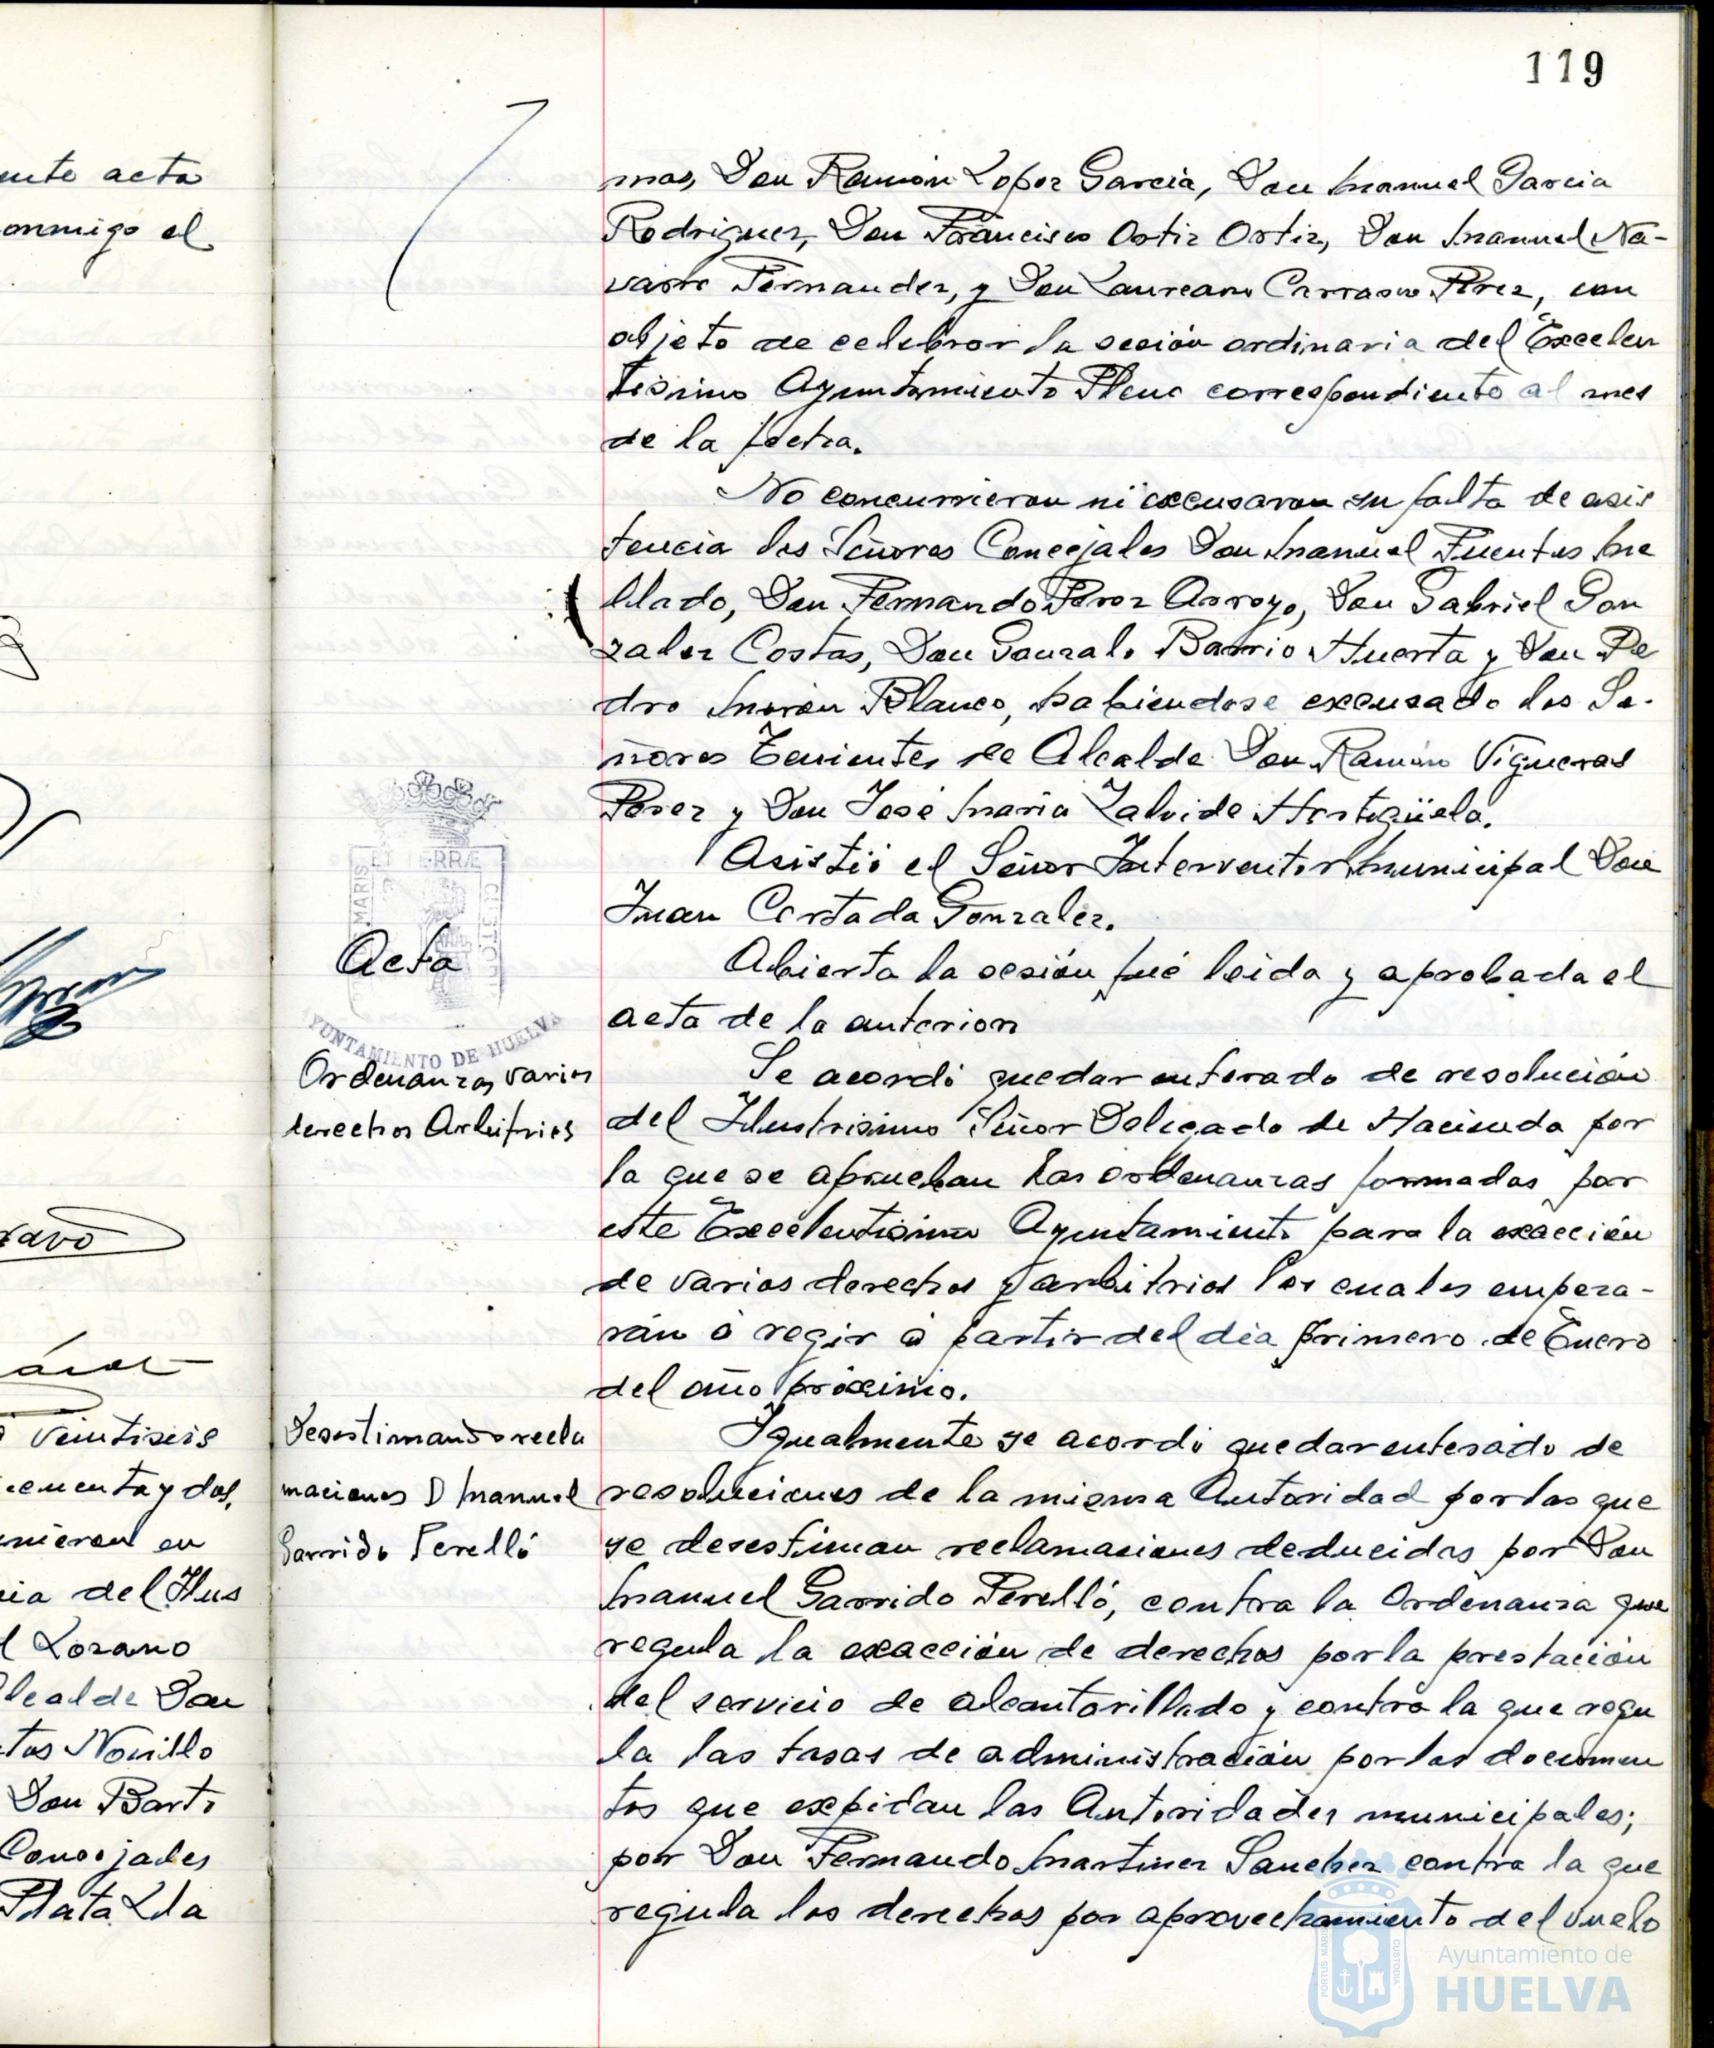 119
ente acta
onmigo el
ravo
Veintiseis
cuenta y dos,
nieron en
cia del Ilus
l Lozano
lcalde Don
tos Novillo
Don Barto
Concejales
Plata Lla
Acta
ET TERRÆ
MARIS
CUSTOD
YUNTAMIENTO DE HUELVA
Ordenanzas varios
derechos Arbitrios
Desestimando recla
maciones D Manuel
Garrido Perelló
mas, Don Ramón Lopez Garcia, Don Manuel Garcia
Rodriguez, Don Francisco Ortiz Ortiz, Don Manuel Na-
varro Fernandez, y Don Laureano Carrasco Perez, con
objeto de celebrar la sesión ordinaria del Excelen
tisimo Ayuntamiento Pleno correspondiente al mes
de la fecha.
No concurrieron ni excusaron su falta de asis
tencia los Señores Concejales Don Manuel Fuentes Me
llado, Don Fernando Perez Arroyo, Don Gabriel Gon
zalez Costas, Don Gonzalo Barrio Huerta y Don Pe
dro Morón Blanco, habiendose excusado los Se-
ñores Tenientes de Alcalde Don Ramón Vigueras
Perez y Don José Maria Zalvide Hortigüela.
Asistió el Señor Interventor Municipal Don
Juan Cortada Gonzalez.
Abierta la sesión fué leida y aprobada el
acta de la anterior
Se acordó quedar enterado de resolución
del Ilustrisimo Señor Delegado de Hacienda por
la que se aprueban las ordenanzas formadas por
este Excelentisimo Ayuntamiento para la exacción
de varios derechos y arbitrios los cuales empeza-
rán á regir á partir del dia primero de Enero
del año próximo.
Igualmente se acordó quedar enterado de
resoluciones de la misma Autoridad por las que
se desestiman reclamaciones deducidas por Don
Manuel Garrido Perelló, contra la Ordenanza que
regula la exacción de derechos por la prestación
del servicio de alcantarillado y contra la que regu
la las tasas de administración por los documen
tos que expidan las Autoridades municipales;
por Don Fernando Martinez Sanchez contra la que
regula los derechos por aprovechamiento del vuelo
Ayuntamiento de
HUELVA